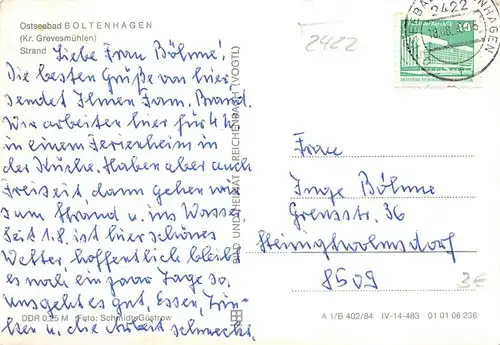 Ostseebad BOLTENHAGEN
(Kr. Grevesmühlen)
Strand
Liebe Frau Böhme!
Die besten Grüße von hier
sendet Ihnen Fam. Brand.
Wir arbeiten hier für 4 W.
in einem Ferienheim in
der Küche. Haben aber auch
Freizeit, dann gehen wir
zum Strand u. ins Wasser.
Seit 1.8. ist hier schönes
Wetter, hoffentlich bleibt
es noch ein paar Tage so,
uns geht es gut, Essen, Trin-
ken u. die Arbeit schmeckt.
DDR 0,25 M Foto: Schmidt, Güstrow
BILD UND HEIMAT REICHENBACH (VOGTL)
2422
2422
10
Frau
Inge Böhme
Grenzstr. 36
Steinigtwolmsdorf
8509
3€
A 1/B 402/84 IV-14-483 01 01 06 236